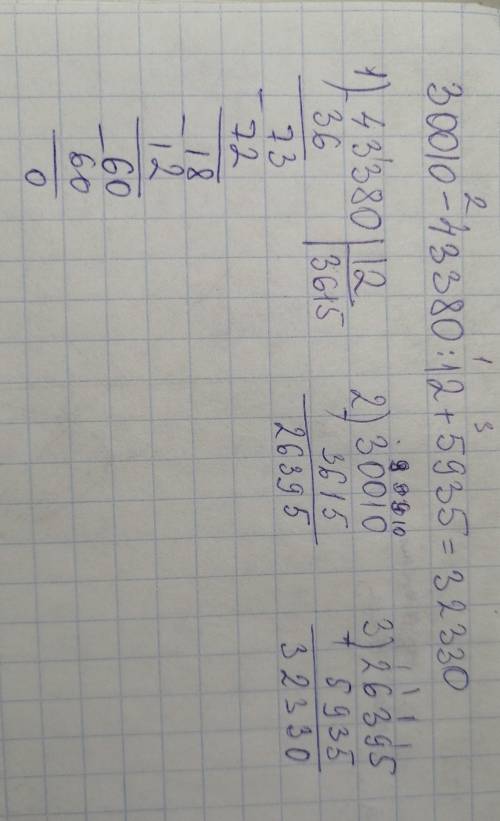 2 1 3
30010 - 43380 : 12 + 5935 = 32330
1) 43380 | 12
36 | 3615
- 73
72
- 18
12
- 60
60
0
2) 30010
- 3615
26395
1 1 1
3) 26395
+ 5935
32330